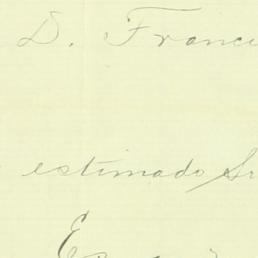 D. Franc
estimado Sr